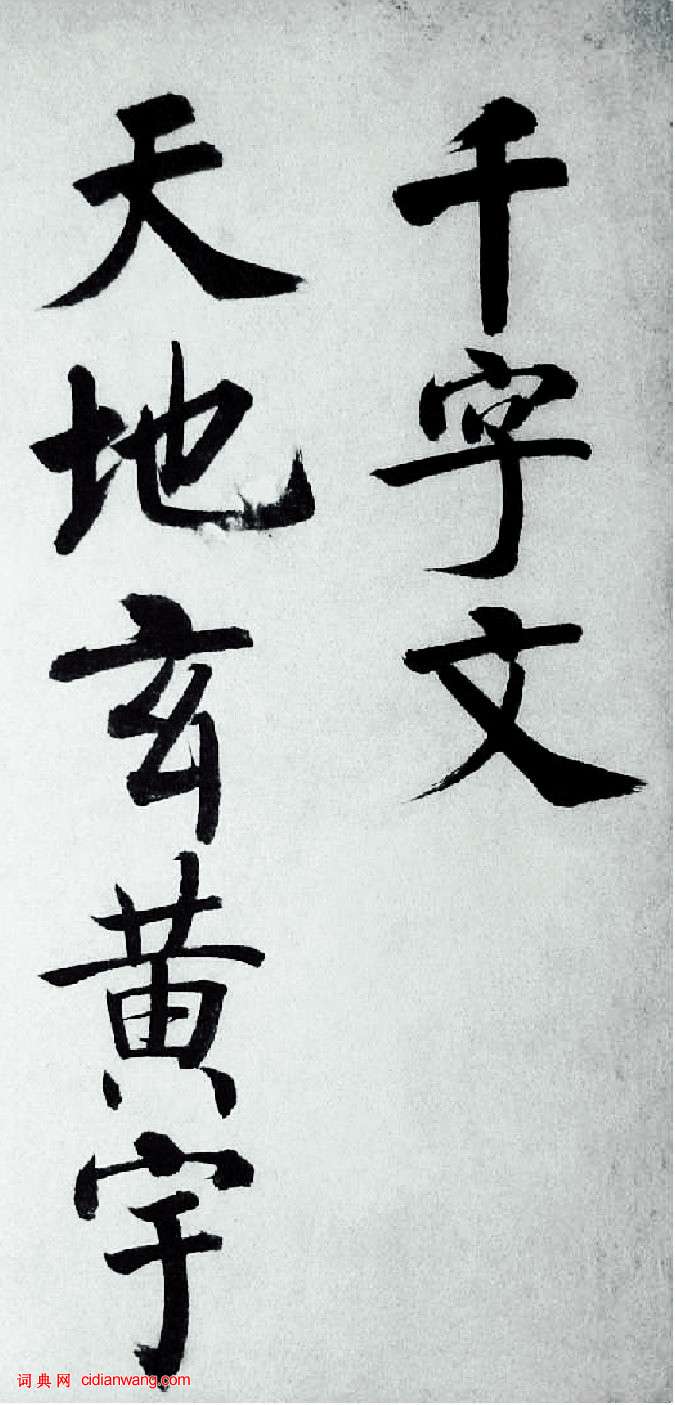 千字文
天地玄黄宇
词典网 cidianwang.com